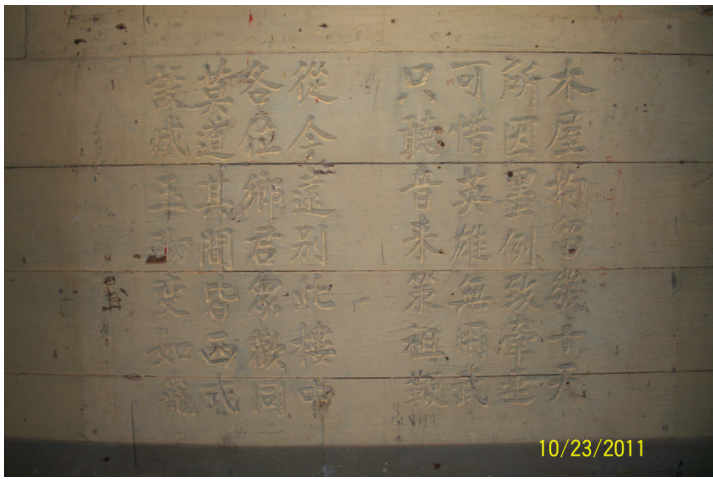 木屋拘留幾十天
所囚墨例致牽連
可惜英雄無用武
只聽音来策祖鞭
從今遠別此樓中
各位鄉君眾歡同
莫道其間皆西式
設成玉砌變如籠
10/23/2011